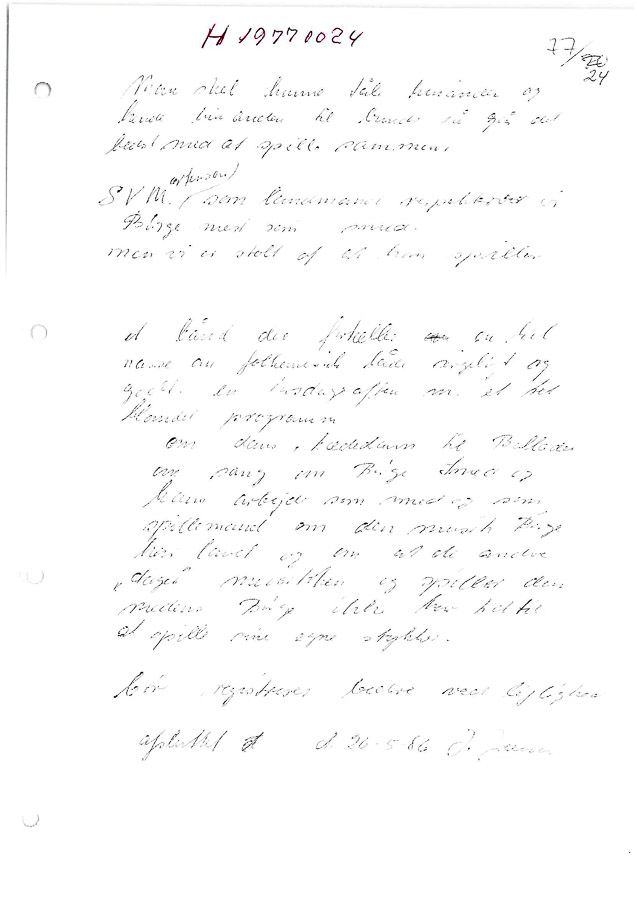 H 19770024
77/24
Man skal kunne tåle hinanden og
kende hinanden til bunds så går det
bedst med at spille sammen.
SVM. (ortensen) som landmand respekterer vi
Børge mest som smed.
men vi er stolt af at han spiller
et bånd der fortæller om en hel
masse om folkemusik både sagligt og
godt. en tirsdag aften m. et hel
blandet program
om dans, kædedans til Ballader
om sang om Børge Smed og
hans arbejde som smed og som
spillemand om den musik Børge
har lavet og om at de andre
"dager" musikken og spiller den
medens Børge ikke har tid til
at spille sine egne stykker.
bør registreres bedre ved lejlighed
afsluttet d 26-5-86 J.